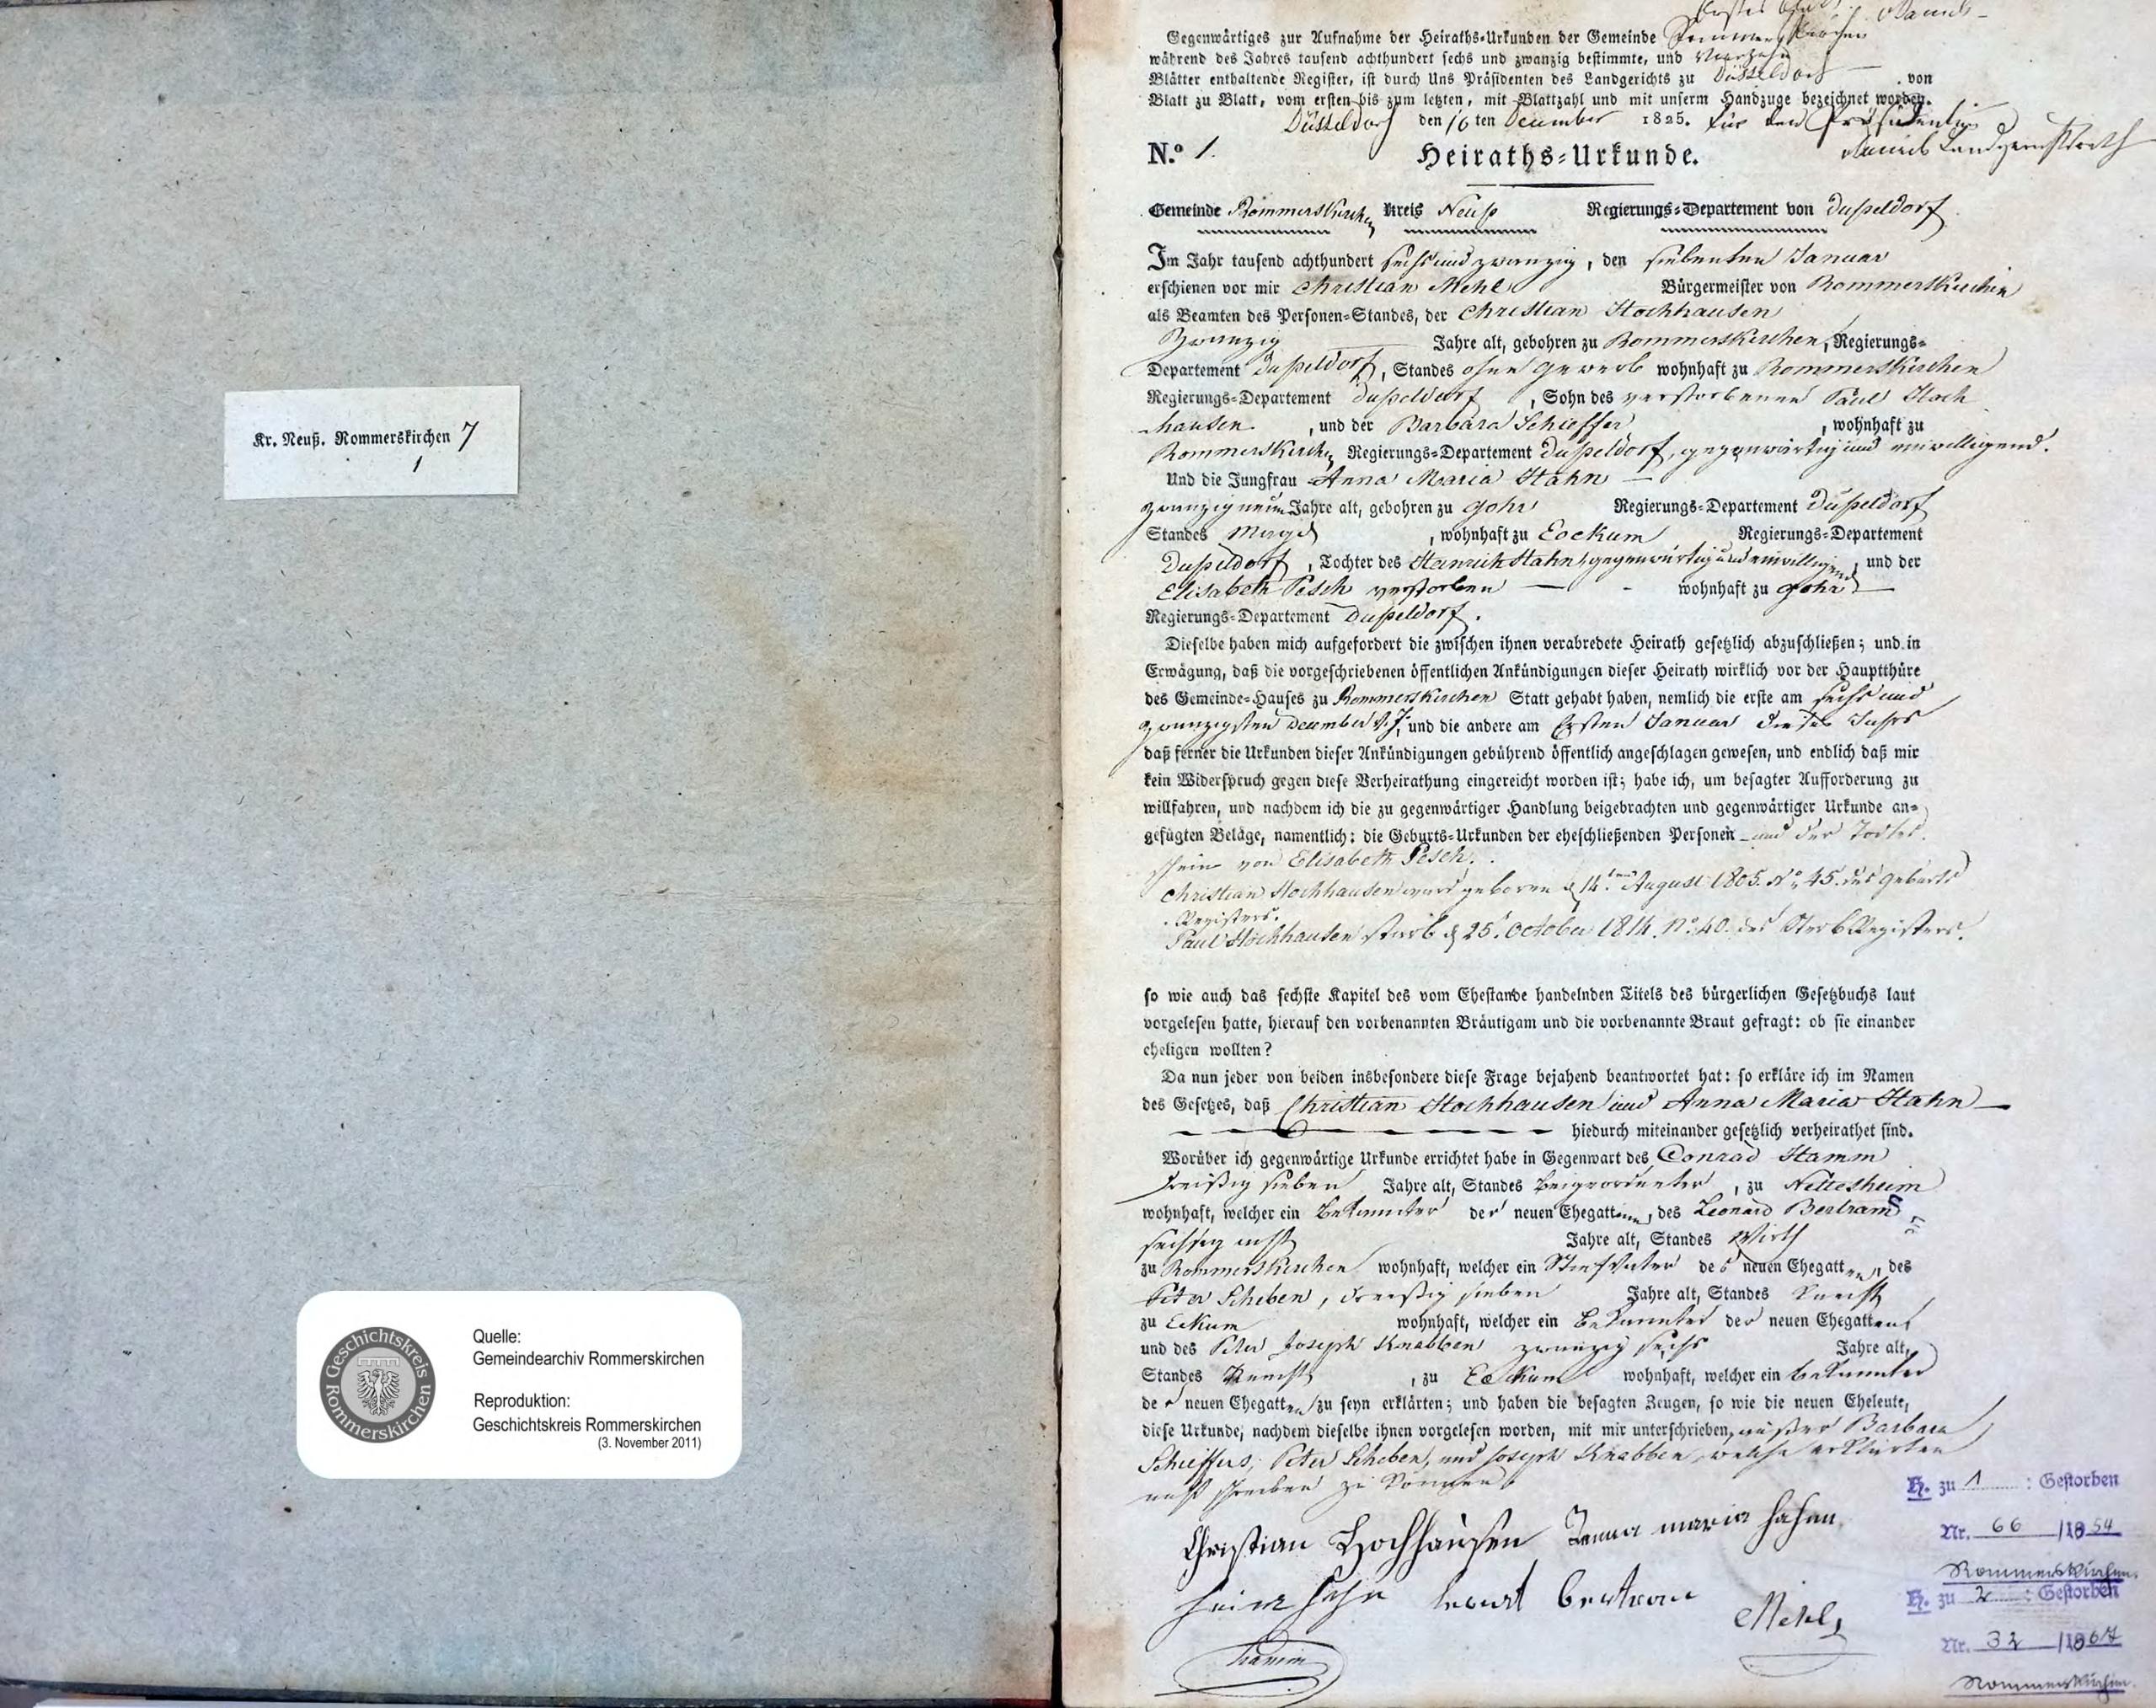 Kr. Neuß. Rommerskirchen 7
1
Geschichtskreis Rommerskirchen
Quelle:
Gemeindearchiv Rommerskirchen
Reproduktion:
Geschichtskreis Rommerskirchen
(3. November 2011)
Erstes Blatt
Gegenwärtiges zur Aufnahme der Heiraths-Urkunden der Gemeinde Rommerskirchen
während des Jahres tausend achthundert sechs und zwanzig bestimmte, und Vierzehn
Blätter enthaltende Register, ist durch Uns Präsidenten des Landgerichts zu Düsseldorf von
Blatt zu Blatt, vom ersten bis zum letzten, mit Blattzahl und mit unserm Handzuge bezeichnet worden.
Düsseldorf den 16 ten December 1825. Für den Präsidenten
Landgerichtsrath
N.º 1. Heiraths-Urkunde.
Gemeinde Rommerskirchen Kreis Neuß Regierungs-Departement von Dußeldorf
Im Jahr tausend achthundert sechs und zwanzig, den siebenten Januar
erschienen vor mir Christian Mehl Bürgermeister von Rommerskirchen
als Beamten des Personen-Standes, der Christian Hochhausen
Zwanzig Jahre alt, gebohren zu Rommerskirchen, Regierungs-
Departement Dußeldorf, Standes ohne Gewerb wohnhaft zu Rommerskirchen
Regierungs-Departement Dußeldorf, Sohn des verstorbenen Paul Hoch
hausen, und der Barbara Schieffer, wohnhaft zu
Rommerskirchen Regierungs-Departement Dußeldorf, gegenwärtig und einwilligend.
Und die Jungfrau Anna Maria Hahn
zwanzig neun Jahre alt, gebohren zu Gohr Regierungs-Departement Dußeldorf
Standes Magd, wohnhaft zu Eockum Regierungs-Departement
Dußeldorf, Tochter des Heinrich Hahn, gegenwärtig und einwilligend, und der
Elisabeth Pesch verstorben wohnhaft zu Gohr
Regierungs-Departement Dußeldorf.
Dieselbe haben mich aufgefordert die zwischen ihnen verabredete Heirath gesetzlich abzuschließen; und in
Erwägung, daß die vorgeschriebenen öffentlichen Ankündigungen dieser Heirath wirklich vor der Hauptthüre
des Gemeinde-Hauses zu Rommerskirchen Statt gehabt haben, nemlich die erste am sechs und
zwanzigsten December v. J. und die andere am Ersten Januar dieses Jahrs
daß ferner die Urkunden dieser Ankündigungen gebührend öffentlich angeschlagen gewesen, und endlich daß mir
kein Widerspruch gegen diese Verheirathung eingereicht worden ist; habe ich, um besagter Aufforderung zu
willfahren, und nachdem ich die zu gegenwärtiger Handlung beigebrachten und gegenwärtiger Urkunde an-
gefügten Beläge, namentlich: die Geburts-Urkunden der eheschließenden Personen und der Todtes
schein von Elisabeth Pesch.
Christian Hochhausen ward geboren d 14ten August 1805. No. 45. des Geburts
Registers.
Paul Hochhausen starb d 25t. October 1814. No. 40. des Sterb Registers.
so wie auch das sechste Kapitel des vom Ehestande handelnden Titels des bürgerlichen Gesetzbuchs laut
vorgelesen hatte, hierauf den vorbenannten Bräutigam und die vorbenannte Braut gefragt: ob sie einander
eheligen wollten?
Da nun jeder von beiden insbesondere diese Frage bejahend beantwortet hat: so erkläre ich im Namen
des Gesetzes, daß Christian Hochhausen und Anna Maria Hahn
hiedurch miteinander gesetzlich verheirathet sind.
Worüber ich gegenwärtige Urkunde errichtet habe in Gegenwart des Conrad Hamm
dreißig sieben Jahre alt, Standes Beigeordneter, zu Nettesheim
wohnhaft, welcher ein Bekannter der neuen Ehegatten, des Leonard Bertram
sechszig acht Jahre alt, Standes Wirth
zu Rommerskirchen wohnhaft, welcher ein Stiefvater des neuen Ehegatten, des
Peter Scheben, dreißig sieben Jahre alt, Standes Knecht
zu Eckum wohnhaft, welcher ein Bekannter der neuen Ehegatten
und des Peter Joseph Knabben zwanzig sechs Jahre alt,
Standes Knecht, zu Eockum wohnhaft, welcher ein bekannter
der neuen Ehegatten zu seyn erklärten; und haben die besagten Zeugen, so wie die neuen Eheleute,
diese Urkunde, nachdem dieselbe ihnen vorgelesen worden, mit mir unterschrieben, außer Barbara
Schieffers, Peter Scheben, und Joseph Knabben, welche erklärten
nicht schreiben zu können
Christian Hochhausen Anna maria hahn
heinr hahn Bertram
Mehl
Hamm
H. zu 1 : Gestorben
Nr. 66 /1854
Rommerskirchen.
H. zu 2 : Gestorben
Nr. 32 /1867
Rommerskirchen.